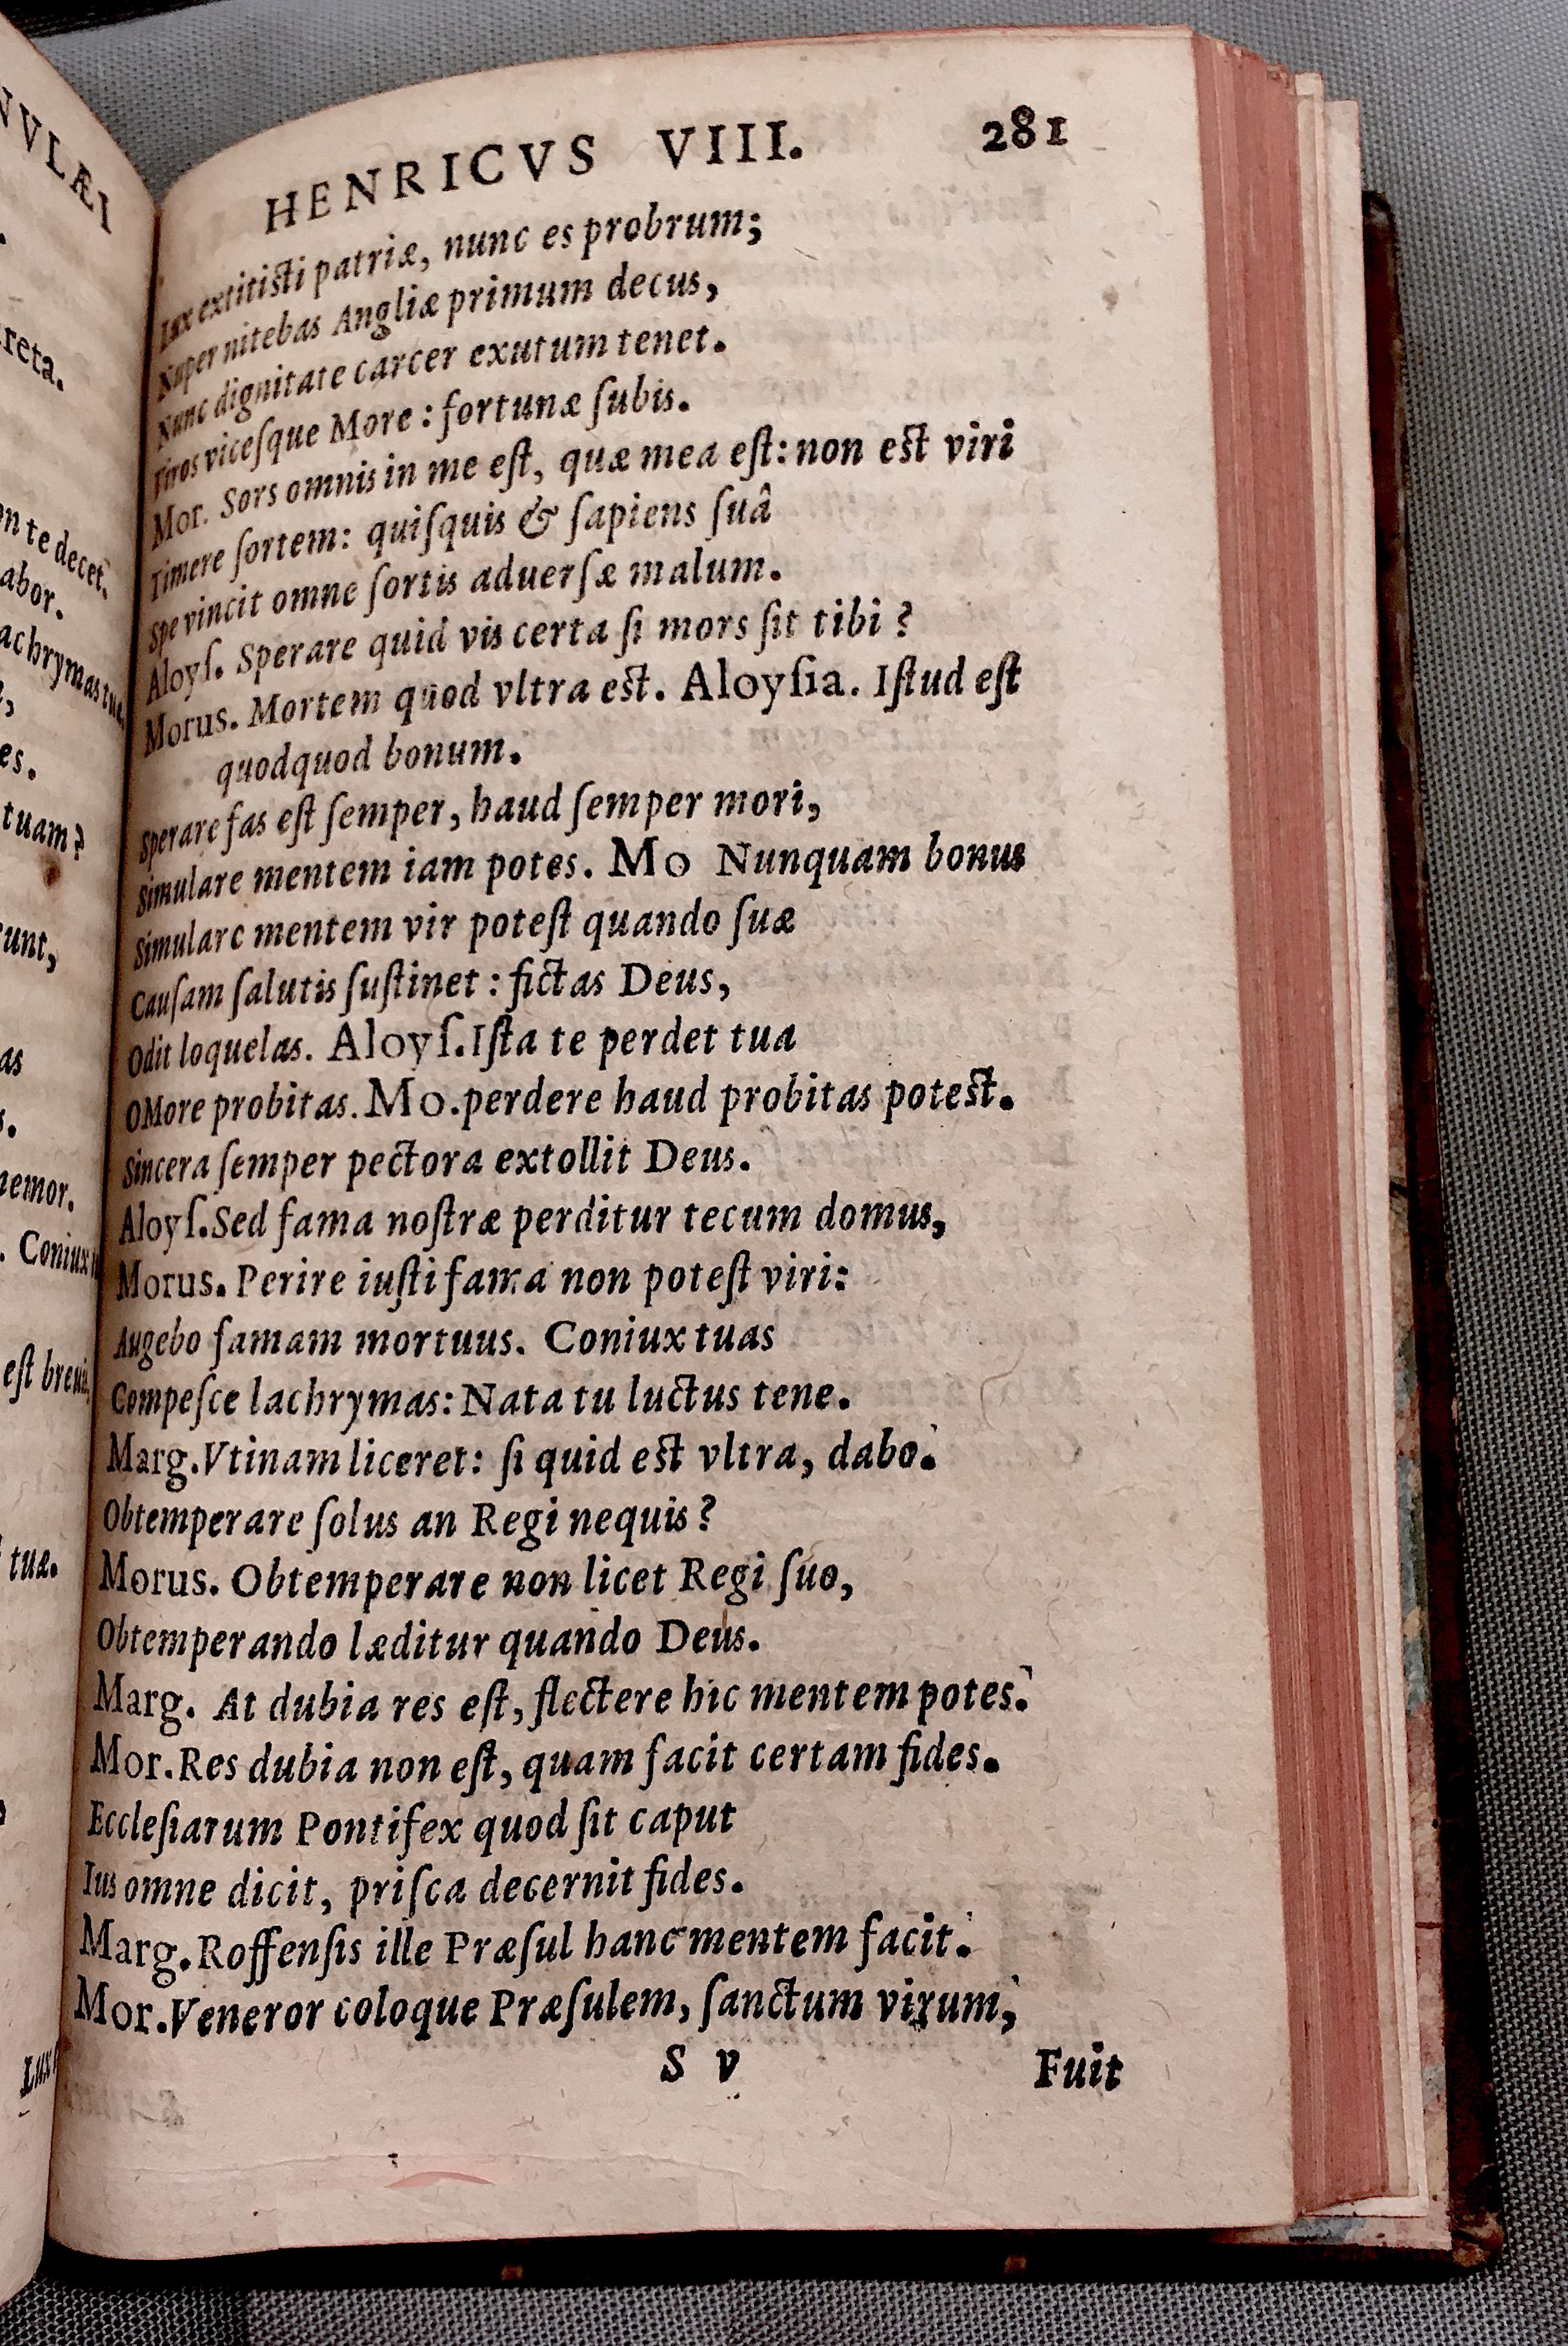 NVLÆI
reta.
on te decet.
abor.
achrymas tu
es.
tuam?
unt,
as
s.
nemor.
. Coniux
est breuis,
tuæ.
Lux
HENRICVS VIII. 281
Lux extitisti patriæ, nunc es probrum;
Nuper nitebas Angliæ primum decus,
Nunc dignitate carcer exutum tenet.
vicesque More : fortunæ subis.
Mor. Sors omnis in me est, quæ mea est: non est viri
Timere sortem: quisquis & sapiens suâ
Spe vincit omne sortis aduersæ malum.
Aloys. Sperare quid vis certa si mors sit tibi ?
Morus. Mortem quod vltra est. Aloysia. Istud est
quodquod bonum.
Sperare fas est semper, haud semper mori,
Simulare mentem iam potes. Mo Nunquam bonus
Simulare mentem vir potest quando suæ
Causam salutis sustinet : fictas Deus,
Odit loquelas. Aloys. Ista te perdet tua
O More probitas. Mo. perdere haud probitas potest.
Sincera semper pectora extollit Deus.
Aloys. Sed fama nostræ perditur tecum domus,
Morus. Perire iusti fama non potest viri:
Augebo famam mortuus. Coniux tuas
Compesce lachrymas: Nata tu luctus tene.
Marg. Vtinam liceret: si quid est vltra, dabo.
Obtemperare solus an Regi nequis ?
Morus. Obtemperare non licet Regi suo,
Obtemperando læditur quando Deus.
Marg. At dubia res est, flectere hic mentem potes.
Mor. Res dubia non est, quam facit certam fides.
Ecclesiarum Pontifex quod sit caput
Ius omne dicit, prisca decernit fides.
Marg. Roffensis ille Præsul hanc mentem facit.
Mor. Veneror coloque Præsulem, sanctum virum,
S v Fuit